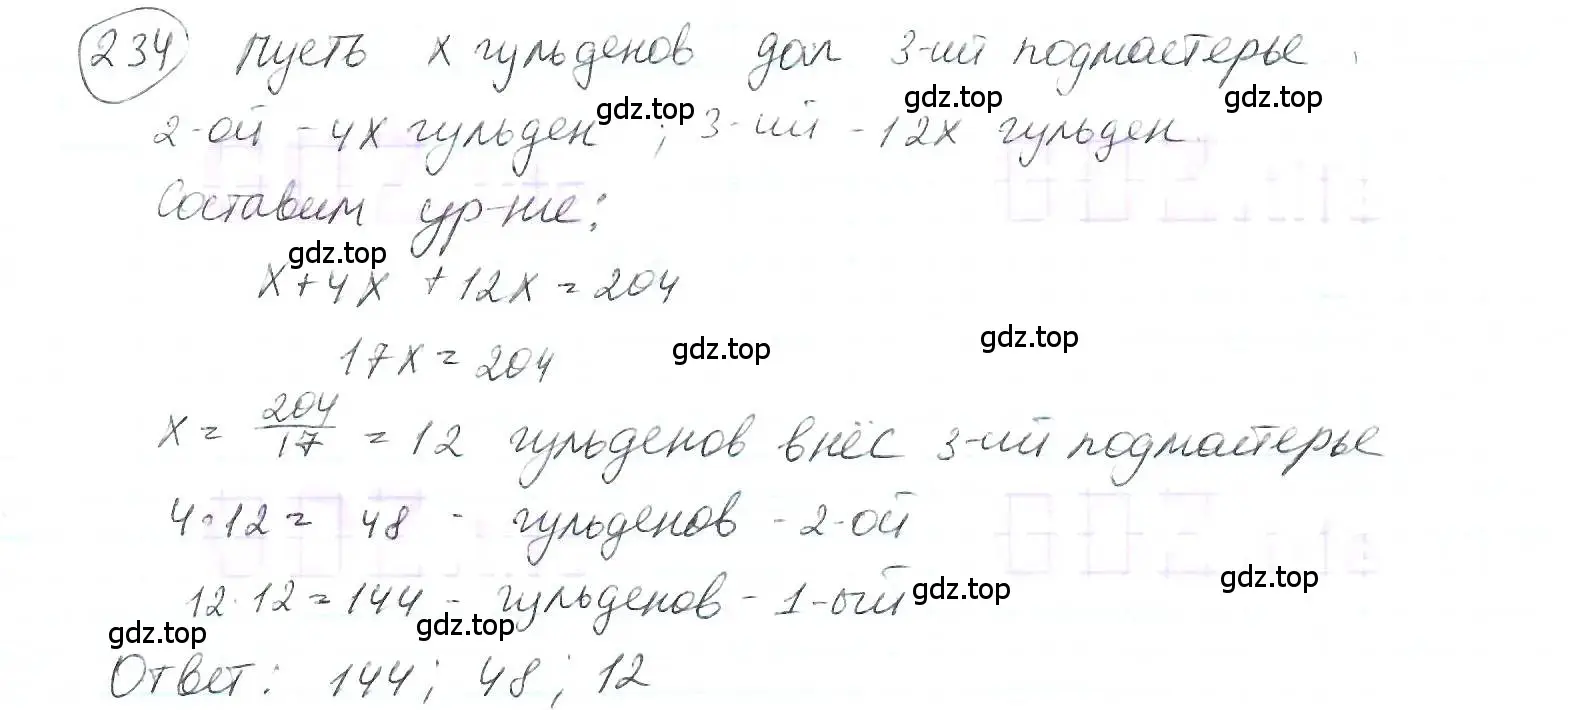 234 Пусть x гульденов дал 3-ий подмастерье
gdz.top gdz.top gdz.top
2-ой - 4x гульден ; 3-ий - 12x гульден
Составим ур-ние:
gdz.top
x+4x + 12x = 204
gdz.top gdz.top
17x = 204
x = 204/17 = 12 гульденов внёс 3-ий подмастерье
4·12 = 48 - гульденов - 2-ой
12·12 = 144 - гульденов - 1-ый
gdz.top gdz.top
gdz.top gdz.top
Ответ: 144; 48; 12